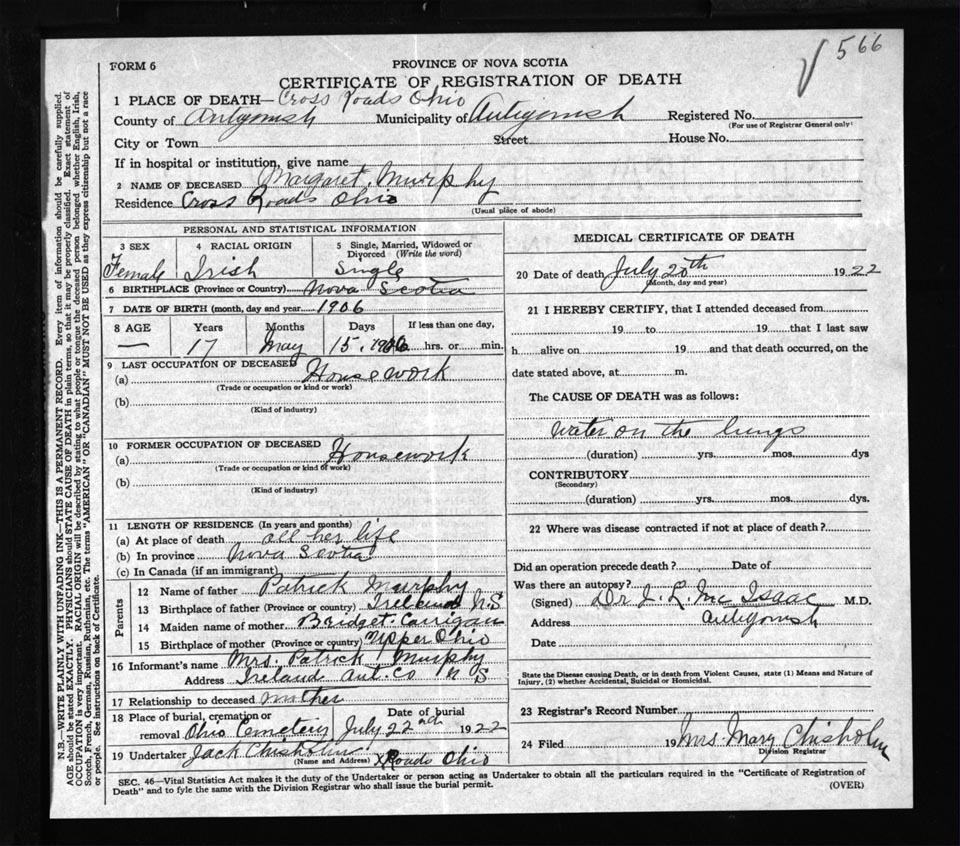 566
FORM 6
PROVINCE OF NOVA SCOTIA
CERTIFICATE OF REGISTRATION OF DEATH
1 PLACE OF DEATH— Cross Roads Ohio
County of Antigonish Municipality of Antigonish Registered No.
(For use of Registrar General only)
City or Town Street House No.
If in hospital or institution, give name
2 NAME OF DECEASED Margaret Murphy
Residence Cross Roads Ohio
(Usual place of abode)
PERSONAL AND STATISTICAL INFORMATION
3 SEX 4 RACIAL ORIGIN 5 Single, Married, Widowed or Divorced (Write the word)
Female Irish Single
6 BIRTHPLACE (Province or Country) Nova Scotia
7 DATE OF BIRTH (month, day and year) 1906
8 AGE Years Months Days If less than one day,
— 17 May 15, 1906 hrs. or min.
9 LAST OCCUPATION OF DECEASED
(a) Housework
(Trade or occupation or kind of work)
(b)
(Kind of industry)
10 FORMER OCCUPATION OF DECEASED
(a) Housework
(Trade or occupation or kind of work)
(b)
(Kind of industry)
11 LENGTH OF RESIDENCE (In years and months)
(a) At place of death all her life
(b) In province Nova Scotia
(c) In Canada (if an immigrant)
Parents
12 Name of father Patrick Murphy
13 Birthplace of father (Province or country) Ireland N.S
14 Maiden name of mother Bridget Carrigan
15 Birthplace of mother (Province or country) Upper Ohio
16 Informant's name Mrs. Patrick Murphy
Address Ireland Ant. Co N S
17 Relationship to deceased mother
18 Place of burial, cremation or removal Ohio Cemetery Date of burial July 22nd 1922
19 Undertaker Jack Chisholm X Roads Ohio
(Name and Address)
MEDICAL CERTIFICATE OF DEATH
20 Date of death July 20th 1922
(Month, day and year)
21 I HEREBY CERTIFY, that I attended deceased from
19 to 19 that I last saw
h alive on 19 and that death occurred, on the
date stated above, at m.
The CAUSE OF DEATH was as follows:
water on the lungs
(duration) yrs. mos. dys
CONTRIBUTORY
(Secondary)
(duration) yrs. mos. dys.
22 Where was disease contracted if not at place of death?
Did an operation precede death? Date of
Was there an autopsy?
(Signed) Dr J. L. Mc Isaac M.D.
Address Antigonish
Date
State the Disease causing Death, or in death from Violent Causes, state (1) Means and Nature of
Injury, (2) whether Accidental, Suicidal or Homicidal.
23 Registrar's Record Number
24 Filed 19 Mrs. Mary Chisholm
Division Registrar
SEC. 46—Vital Statistics Act makes it the duty of the Undertaker or person acting as Undertaker to obtain all the particulars required in the "Certificate of Registration of
Death" and to fyle the same with the Division Registrar who shall issue the burial permit. (OVER)
N.B.—WRITE PLAINLY WITH UNFADING INK—THIS IS A PERMANENT RECORD. Every item of information should be carefully supplied.
AGE should be stated EXACTLY. PHYSICIANS should STATE CAUSE OF DEATH in plain terms, so that it may be properly classified. Exact statement of
OCCUPATION is very important. RACIAL ORIGIN will be described by stating to what people or tongue the deceased person belonged whether English, Irish,
Scotch, French, German, Russian, Ruthenian, etc. The terms "AMERICAN" OR "CANADIAN" MUST NOT BE USED as they express citizenship but not a race
or people. See instructions on back of Certificate.